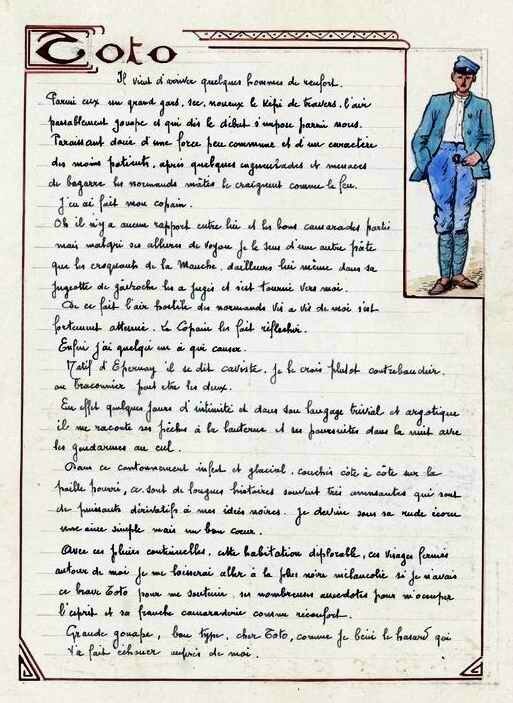 Toto
Il vient d'arriver quelques hommes de renfort.
Parmi eux un grand gars, sec, noueux le képi de travers, l'air
passablement gouape et qui dès le début s'impose parmi nous.
Paraissant doué d'une force peu commune et d'un caractère
des moins patients, après quelques engueulades et menaces
de bagarre les normands matés le craignent comme le feu.
J'en ai fait mon copain.
Oh il n'y a aucun rapport entre lui et les bons camarades partis
mais malgré ses allures de voyou je le sens d'une autre pâte
que les croquants de la Manche, d'ailleurs lui même dans sa
jugeotte de gavroche les a jugés et s'est tourné vers moi.
De ce fait l'air hostile des normands vis a vis de moi s'est
fortement atténué. Le Copain les fait réfléchir.
Enfin j'ai quelqu'un à qui causer.
Natif d'Epernay il se dit caviste. Je le crois plutot contrebandier
ou braconnier peut etre les deux.
En effet quelques jours d'intimité et dans son langage trivial et argotique
il me raconte ses pêches à la lanterne et ses poursuites dans la nuit avec
les gendarmes au cul.
Dans ce cantonnement infect et glacial, couchés côte à côte sur la
paille pourri, ce sont de longues histoires souvent très amusantes qui sont
de puissants dérivatifs à mes idées noires. Je devine sous sa rude écorce
une âme simple mais un bon cœur.
Avec ces pluies continuelles, cette habitation déplorable, ces visages fermés
autour de moi je me laisserai aller à la plus noire mélancolie si je n'avais
ce brave Toto pour me soutenir, ses nombreuses anecdotes pour m'occuper
l'esprit et sa franche camaraderie comme réconfort.
Grande gouape, bon type, cher Toto, comme je béni le hasard qui
t'a fait échouer auprès de moi.